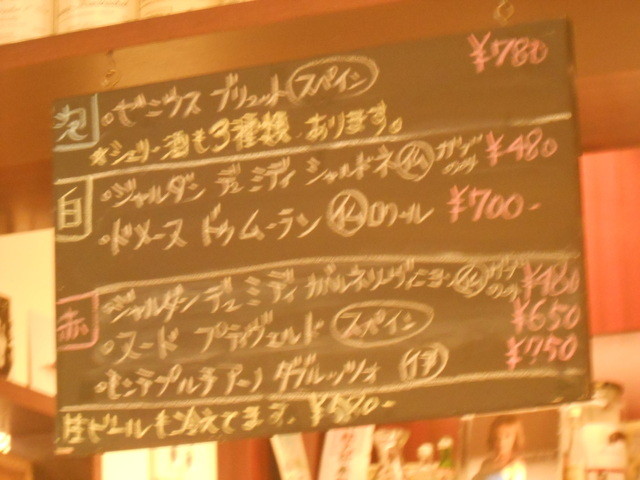 泡 ・ゼニウス ブリュット (スペイン) ¥780
*シェリー酒も3種類 あります。
白 ・ジャルダン デュ ミディ シャルドネ (仏) ¥480
・ドメーヌ ドゥ ムーラン (仏) ロワール ¥700-
赤 ・ジャルダン デュ ミディ カベルネソーヴィニヨン (仏) ¥480
・ヌード プティヴェルド (スペイン) ¥650
・モンテプルチアーノ ダブルッツォ (伊) ¥750
生ビールも冷えてます。¥580-